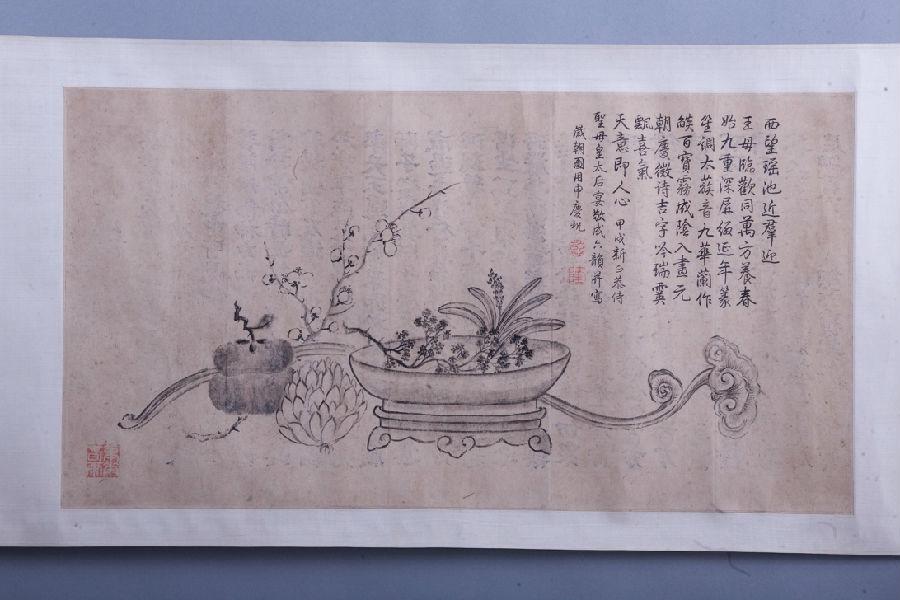 西望瑶池近羣迎
王母臨歡同萬方養春
始九重深扆綴延年篆
笙調太蔟音九華蘭作
燄百寶霧成陰入畫元
朝慶徵詩吉字吟瑞霙
飄喜氣
天意即人心 甲戌新正恭侍
聖母皇太后宴敬成六韻并寫
歲朝圖用申慶祝